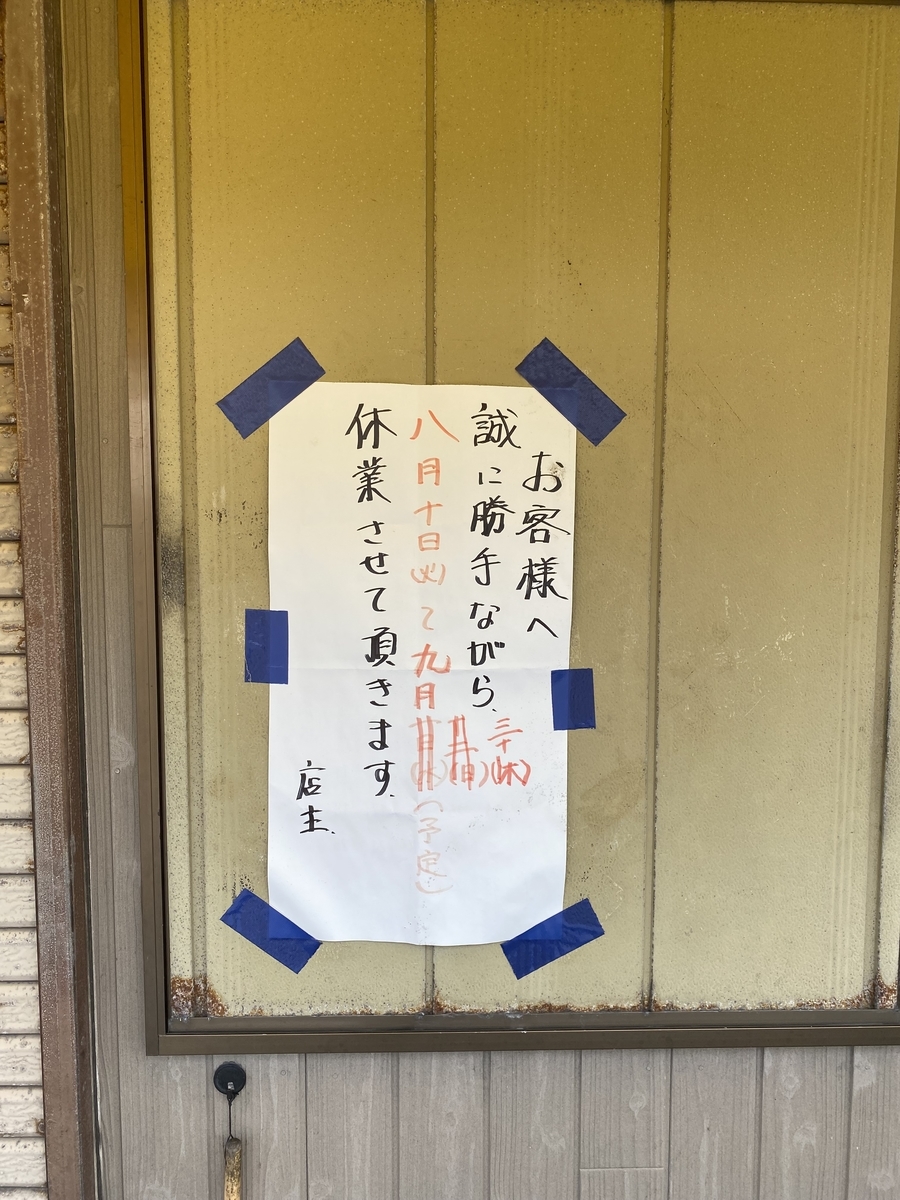 お客様へ
誠に勝手ながら、
三十(木)
八月十日(火)て九月
(予定)
休業させて頂きます。
店主